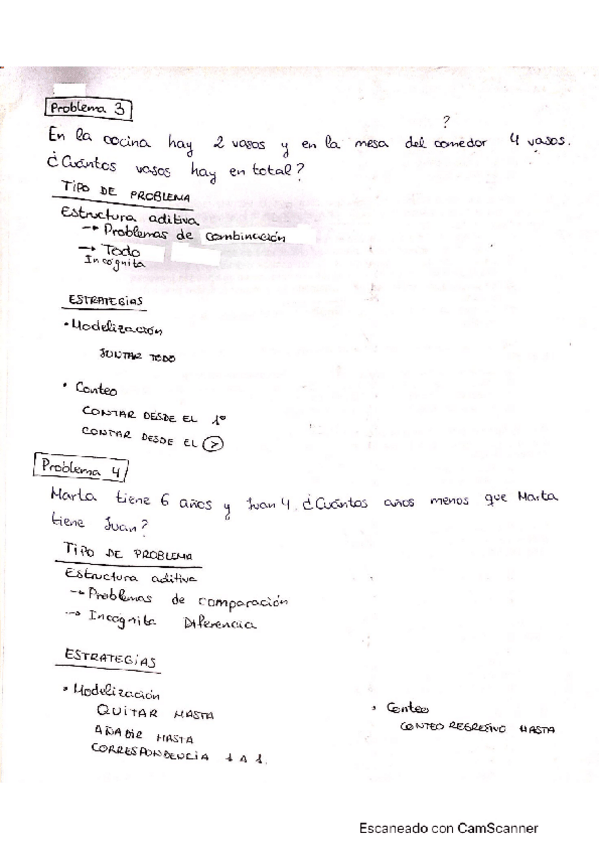 Problema 3
?
En la cocina hay 2 vasos y en la mesa del comedor 4 vasos.
¿Cuántos vasos hay en total?
TIPO DE PROBLEMA
Estructura aditiva
→ Problemas de combinación
→ Todo
Incógnita
ESTRATEGIAS
• Modelización
JUNTAR TODO
• Conteo
CONTAR DESDE EL 1º
CONTAR DESDE EL >
Problema 4
Marta tiene 6 años y Juan 4. ¿Cuántos años menos que Marta
tiene Juan?
TIPO DE PROBLEMA
Estructura aditiva
→ Problemas de comparación
→ Incógnita Diferencia
ESTRATEGIAS
• Modelización
QUITAR HASTA
AÑADIR HASTA
CORRESPONDENCIA 1 A 1.
• Conteo
CONTEO REGRESIVO HASTA
Escaneado con CamScanner